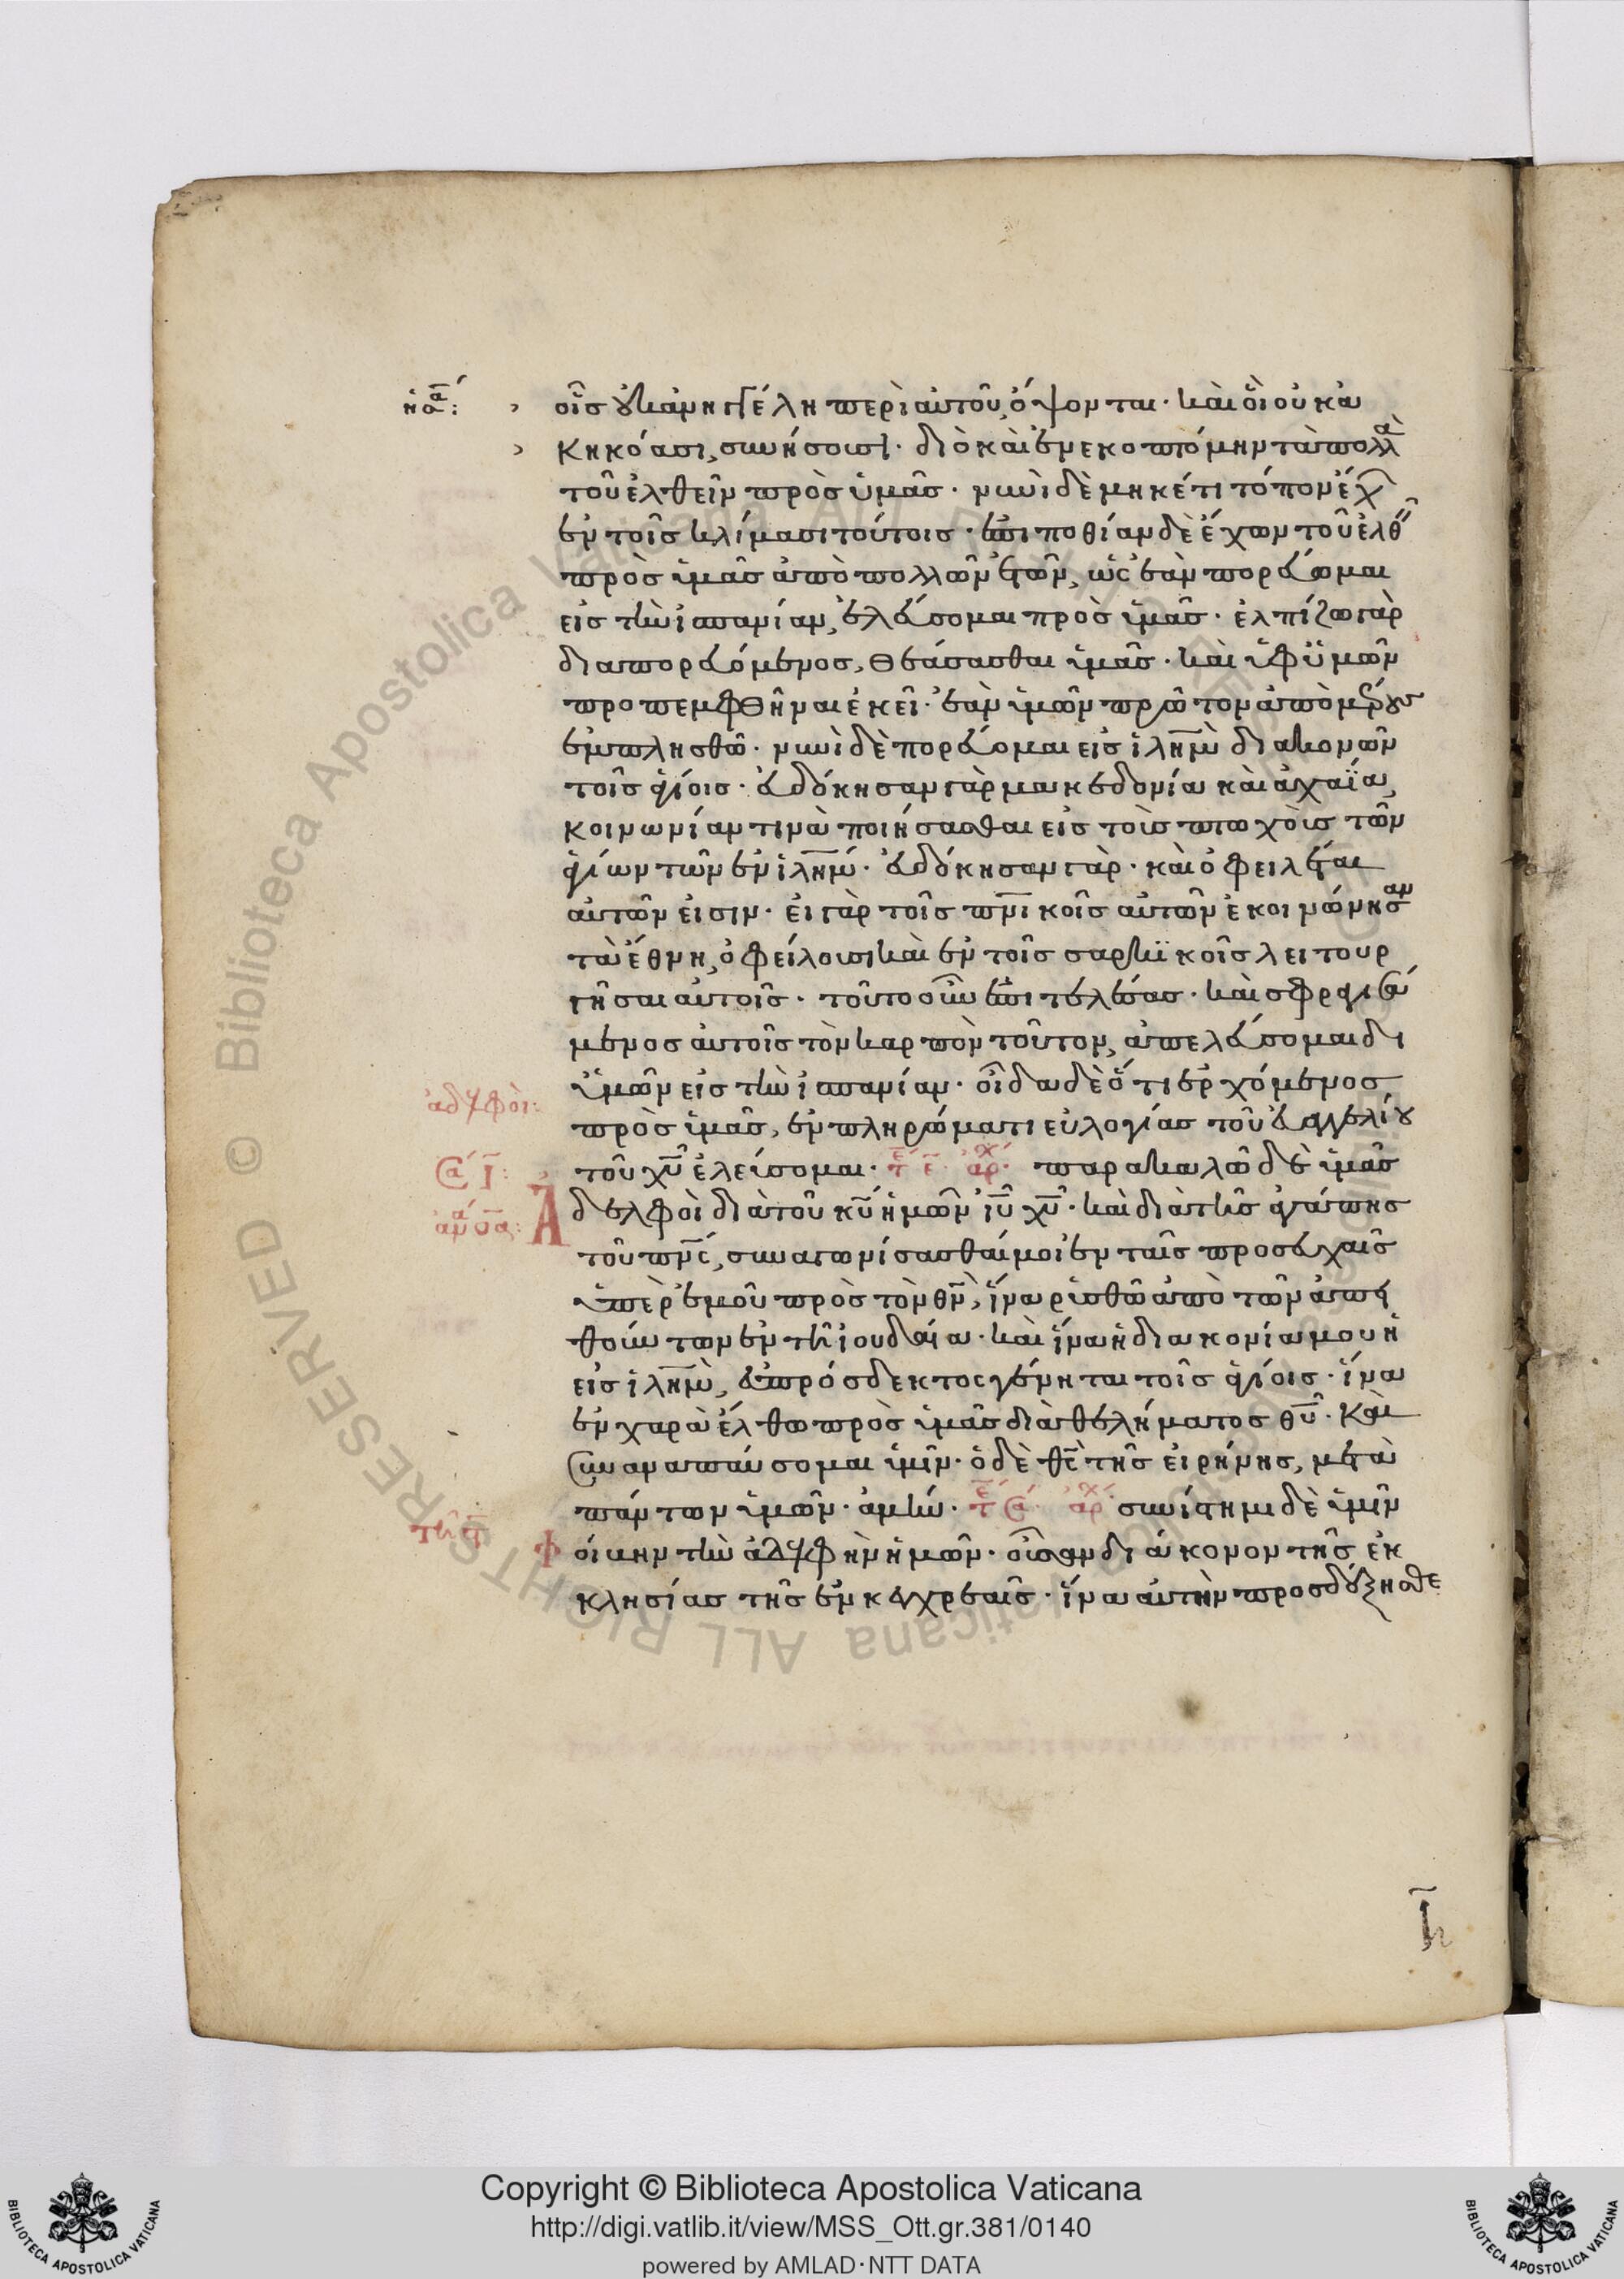 ἡσα:
οἷς οὐκ ἀνηγγέλη περὶ αὐτοῦ, ὄψονται· καὶ οἳ οὐκ ἀ
κηκόασι, συνήσουσι· διὸ καὶ ἐνεκοπτόμην τὰ πολλὰ
τοῦ ἐλθεῖν πρὸς ὑμᾶς· νυνὶ δὲ μηκέτι τόπον ἔχ
ἐν τοῖς κλίμασι τούτοις· ἐπιποθίαν δὲ ἔχων τοῦ ἐλθ
πρὸς ὑμᾶς ἀπὸ πολλῶν ἐτῶν, ὡς ἐὰν πορεύομαι
εἰς τὴν ἱσπανίαν, ἐλεύσομαι πρὸς ὑμᾶς· ἐλπίζω γὰρ
διαπορευόμενος, θεάσασθαι ὑμᾶς· καὶ ὑφ ὑμῶν
προπεμφθῆναι ἐκεῖ· ἐὰν ὑμῶν πρῶτον ἀπὸ μέρους
ἐμπλησθῶ· νυνὶ δὲ πορεύομαι εἰς ἱλημ διακονῶν
τοῖς ἁγίοις· εὐδόκησαν γὰρ μακεδονία καὶ ἀχαΐα,
κοινωνίαν τινὰ ποιήσασθαι εἰς τοὺς πτωχοὺς τῶν
ἁγίων τῶν ἐν ἱλημ· εὐδόκησαν γὰρ· καὶ ὀφειλέται
αὐτῶν εἰσιν· εἰ γὰρ τοῖς πνικοῖς αὐτῶν ἐκοινώνησαν
τὰ ἔθνη, ὀφείλουσι καὶ ἐν τοῖς σαρκϊκοῖς λειτουρ
γῆσαι αὐτοῖς· τοῦτο οὖν ἐπιτελέσας· καὶ σφραγισά
μενος αὐτοῖς τὸν καρπὸν τοῦτον, ἀπελεύσομαι δι
ὑμῶν εἰς τὴν ἱσπανίαν· οἶδα δὲ ὅτι ἐρχόμενος
ἀδελφοὶ:
πρὸς ὑμᾶς, ἐν πληρώματι εὐλογίας τοῦ εὐαγγελίου
τοῦ χυ ἐλεύσομαι· τε ε· ἀρχ· παρακαλῶ δὲ ὑμᾶς
ἀδελφοὶ διὰ τοῦ κυ ἡμῶν ιυ χυ· καὶ διὰ τῆς ἀγάπης
τοῦ πνς, συναγωνίσασθαί μοι ἐν ταῖς προσευχαῖς
ὑπὲρ ἐμοῦ πρὸς τὸν θν, ἵνα ῥυσθῶ ἀπὸ τῶν ἀπει
θούντων ἐν τῇ ἰουδαία· καὶ ἵνα ἡ διακονία μου ἡ
εἰς ἱλημ, εὐπρόσδεκτος γένηται τοῖς ἁγίοις· ἵνα
ἐν χαρᾷ ἔλθω πρὸς ὑμᾶς διὰ θελήματος θυ· καὶ
συναναπαύσομαι ὑμῖν· ὁ δὲ θς τῆς εἰρήνης, μετὰ
πάντων ὑμῶν· ἀμήν· ἀρχ· συνίστημι δὲ ὑμῖν
φοίβην τὴν ἀδελφὴν ἡμῶν· οὖσαν διάκονον τῆς ἐκ
κλησίας τῆς ἐν κεγχρεαῖς· ἵνα αὐτὴν προσδέξησθε
Copyright © Biblioteca Apostolica Vaticana
http://digi.vatlib.it/view/MSS_Ott.gr.381/0140
powered by AMLAD·NTT DATA